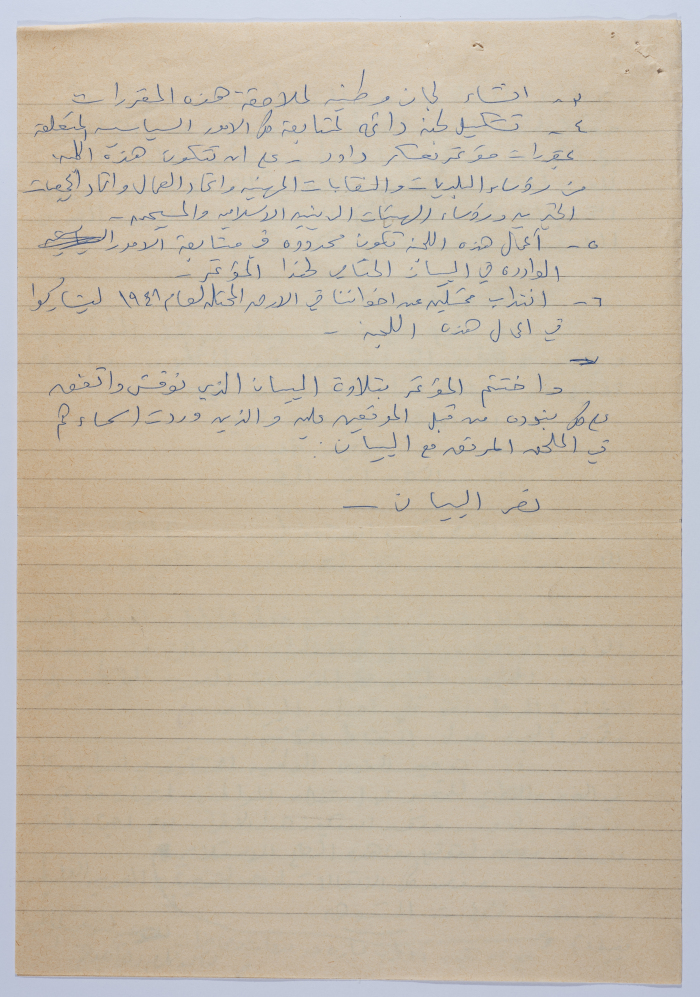 ٣- انشاء لجان وطنيه لملاحقة هذه المقررات
٤- تشكيل لجنه دائمه لمتابعة كل الامور السياسيه المتعلقة
بمقررات مؤتمر كامب داود - على ان تتكون هذه اللجنه
من رؤساء البلديات والنقابات المهنيه واتحاد العمال واتحاد الجمعيات
الخيريه ورؤساء الهيئات الدينيه الاسلاميه والمسيحيه -
٥- أعمال هذه اللجنه تكون محدوده في متابعة الامور
الوارده في البيان الختامي لهذا المؤتمر -
٦- انتداب ممثلين عن اخواننا في الارض المحتله لعام ١٩٤٨ ليشاركوا
في اعمال هذه اللجنه -
واختتم المؤتمر بتلاوة البيان الذي نوقش واتفق
على كل بنوده من قبل الموقعين عليه والذين وردت اسماءهم
في الملحق المرفق مع البيان :
نص البيان —